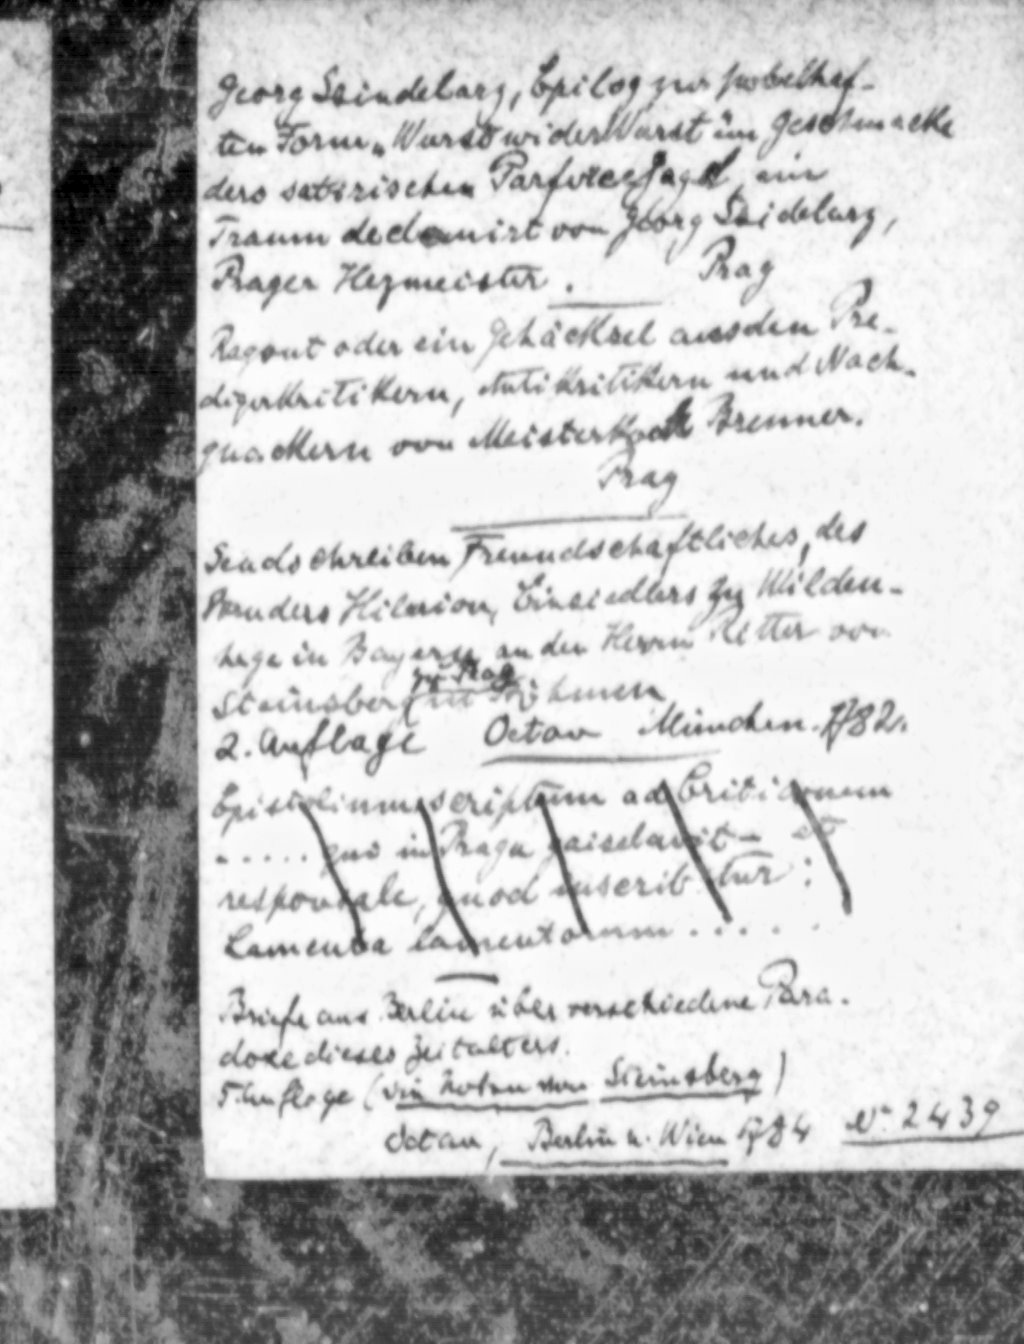 Georg Szindelarz, Epilog zur pöbelhaf-
ten Form „Wurst wider Wurst im Geschmacke
ders satirischen Parforcejagd, ein
Traum declamirt von Georg Szidelarz,
Prager Hezmeister. Prag
Ragout oder ein Gehäcksel aus den Pre-
digerkritikern, Antikritikern und Nach-
quackern von Meister Brenner.
Prag
Sendschreiben Freundschaftliches, des
Bruders Hilarion, Einsiedlers zu Wilden-
hage in Bayern, an den Herrn Ritter von
Steinsberg zu Prag in Böhmen
2. Auflage Octav München. 1782.
Epistolium scriptum ad Criticonem
..... qui in Praga – et
responsale, quod inscribitur:
Lamenta lamentorum .....
Briefe aus Berlin über verschiedene Para-
doxe dieses Zeitalters.
5. Auflage (die Noten von Steinsberg)
Octav, Berlin u. Wien 1784 No 2439